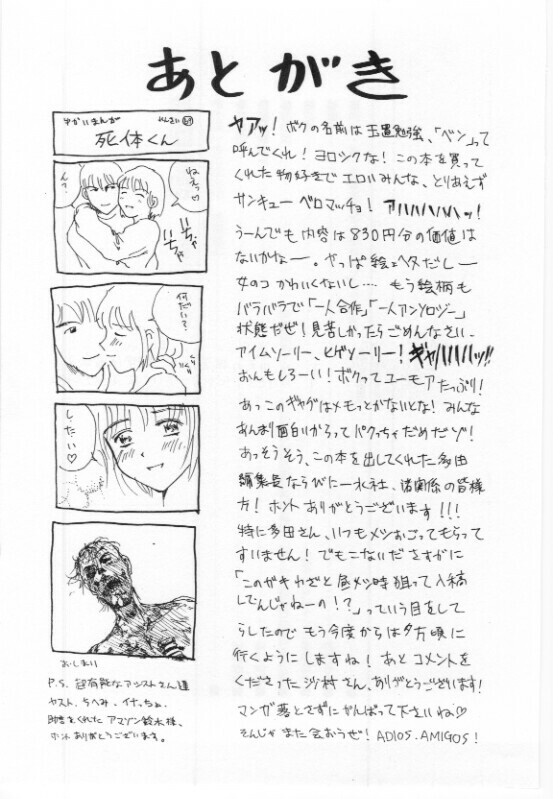 あとがき
ゆかいまんが
死体くん
ねえ♡
ん？
いちゃ
いちゃ
何だい？
したい♡
おしまい
P.S. 超有能なアシストさん達
ヤスト、ちへみ、イナっち、
助言をくれた アマゾン鈴木様、
ホント ありがとうございます。
ヤアッ！ ボクの名前は 玉置勉強、「ベン」って
呼んでくれ！ ヨロシクな！ この本を買って
くれた物好きでエロいみんな、とりあえず
サンキュー ベロマッチョ！ アハハハハハッ！
うーんでも 内容は 830円分の価値は
ないかなー。やっぱ絵ヘタだしー
女のコ かわいくないし…… もう絵柄も
バラバラで「一人合作」「一人アンソロジー」
状態だぜ！見苦しかったらごめんなさい、
アイムソーリー、ヒゲソーリー！ ギャハハハハッ!!
おんもしろーい！ボクってユーモアたっぷり！
あっこのギャグはメモっとかないとな！ みんな
あんまり面白いからって パクっちゃだめだゾ！
あっそうそう、この本を出してくれた多田
編集長ならびに一水社、諸関係の皆様
方！ ホント ありがとうございます！！！
特に多田さん、いつもメシおごってもらって
すいません！ でもこないだ さすがに
「このガキわざと昼メシ時狙って入稿
してんじゃねーの！？」っていう目をして
らしたので もう今度からは夕方頃に
行くように しますね！ あと コメントを
くださった 沙村さん、ありがとうございます！
マンガ落とさずにがんばって下さいね♡
そんじゃ また会おうぜ！ ADIOS. AMIGOS！